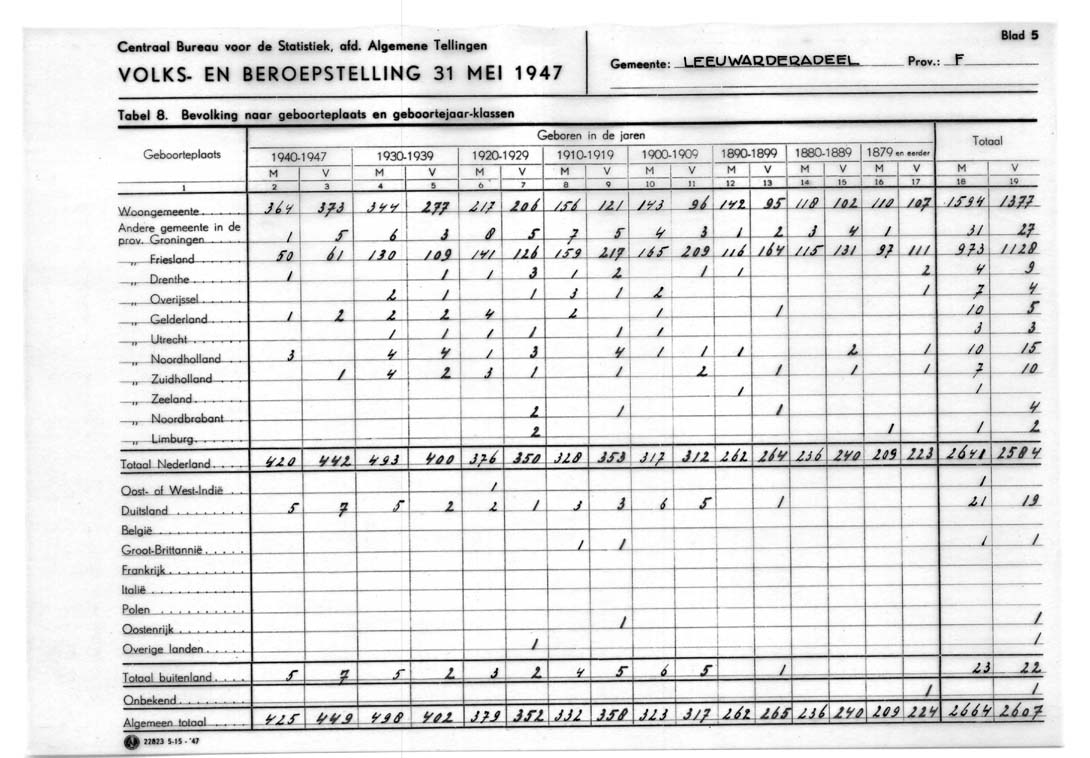 Blad 5
Centraal Bureau voor de Statistiek, afd. Algemene Tellingen
VOLKS- EN BEROEPSTELLING 31 MEI 1947
Gemeente: LEEUWARDERADEEL Prov.: F
Tabel 8. Bevolking naar geboorteplaats en geboortejaar-klassen
Geboorteplaats Geboren in de jaren Totaal
1940-1947 1930-1939 1920-1929 1910-1919 1900-1909 1890-1899 1880-1889 1879 en eerder
M V M V M V M V M V M V M V M V M V
1 2 3 4 5 6 7 8 9 10 11 12 13 14 15 16 17 18 19
Woongemeente 364 373 344 277 217 206 156 121 143 96 142 95 118 102 110 107 1594 1377
Andere gemeente in de
prov. Groningen 1 5 6 3 8 5 7 5 4 3 1 2 3 4 1 31 27
„ Friesland 50 61 130 109 141 126 159 217 165 209 116 164 115 131 97 111 973 1128
„ Drenthe 1 1 1 3 1 2 1 1 2 4 9
„ Overijssel 2 1 1 3 1 2 1 7 4
„ Gelderland 1 2 2 2 4 2 1 1 10 5
„ Utrecht 1 1 1 1 1 1 3 3
„ Noordholland 3 4 4 1 3 4 1 1 1 2 1 10 15
„ Zuidholland 1 4 2 3 1 1 2 1 1 1 7 10
„ Zeeland 1 1
„ Noordbrabant 2 1 1 4
„ Limburg 2 1 1 2
Totaal Nederland 420 442 493 400 376 350 328 353 317 312 262 264 236 240 209 223 2641 2584
Oost- of West-Indië 1 1
Duitsland 5 7 5 2 2 1 3 3 6 5 1 21 19
België
Groot-Brittannië 1 1 1 1
Frankrijk
Italië
Polen
Oostenrijk 1 1
Overige landen 1 1
Totaal buitenland 5 7 5 2 3 2 4 5 6 5 1 23 22
Onbekend 1 1
Algemeen totaal 425 449 498 402 379 352 332 358 323 317 262 265 236 240 209 224 2664 2607
22823 5-15-'47